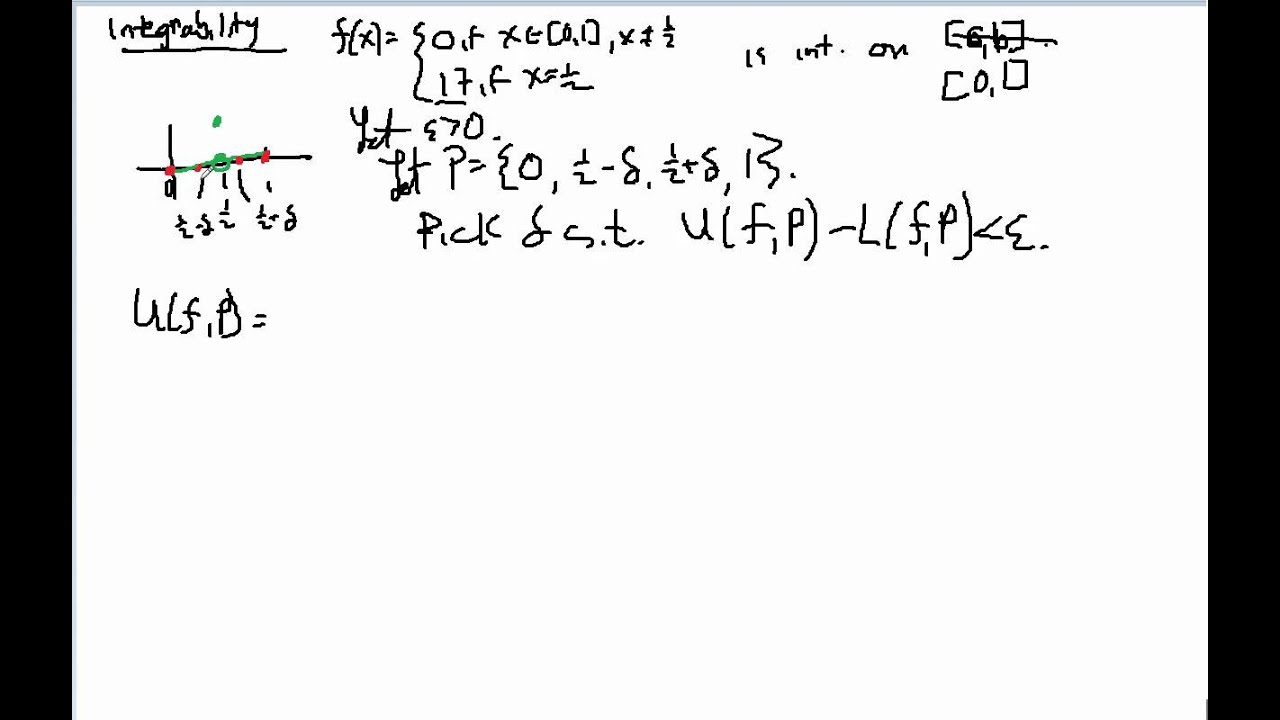 Integrability
f(x) = { 0, if x ∈ [0,1], x ≠ 1/2
17, if x = 1/2
is int. on [a,b].
[0,1]
Let ε>0.
Let P = {0, 1/2 - δ, 1/2 + δ, 1}.
Pick δ s.t. U(f,P) - L(f,P) < ε.
0 1/2 1
1/2 - δ 1/2 + δ
U(f,P) =